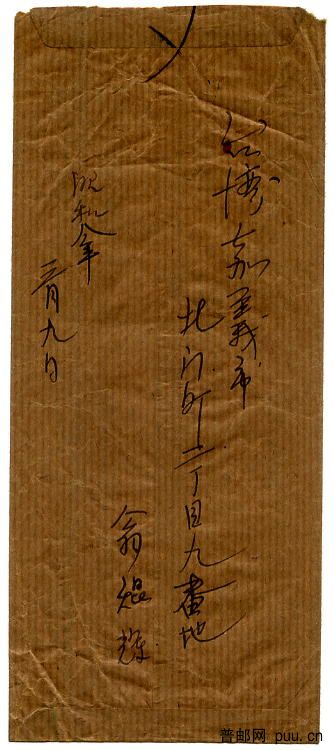 台湾嘉義市
北门町二丁目九番地
翁焜輝
昭和八年
三月九日
普邮网 puu.cn